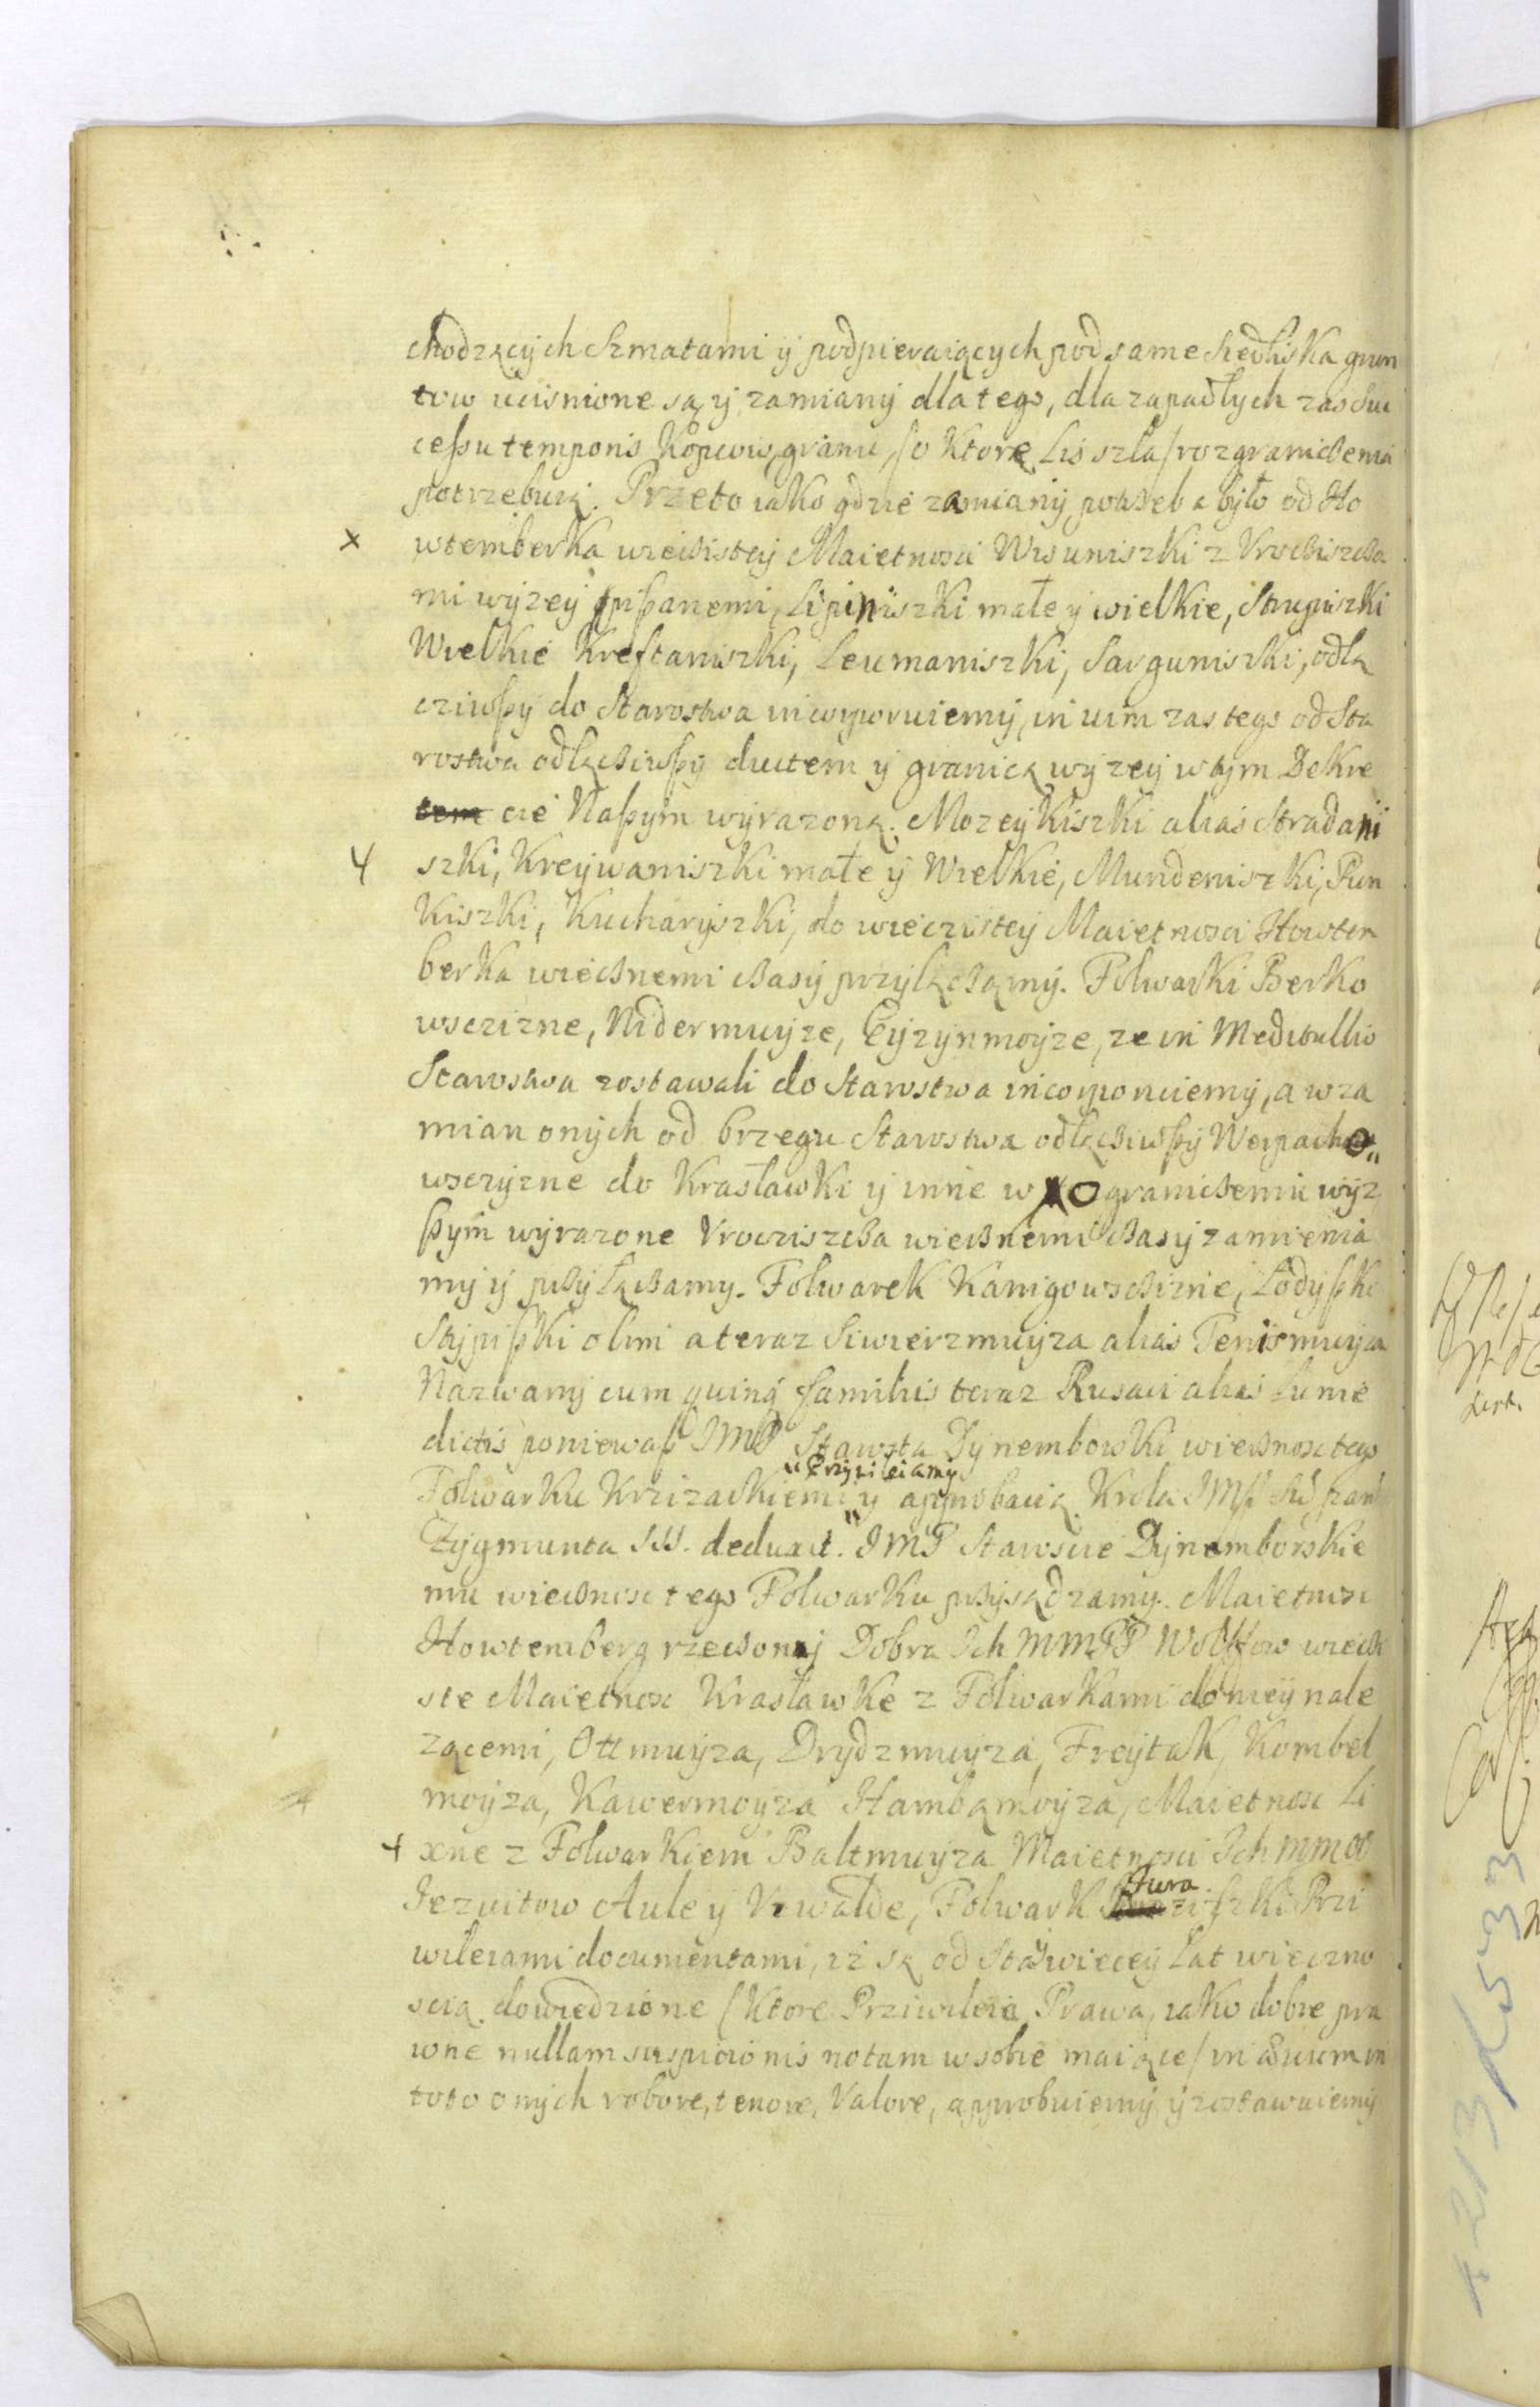 chodzących Szmatami ÿ podpieraiących pod same siedliska grun
tow ucisnione są ÿ zamianÿ dla tego, dla zapadłych zas suc
cessu temporis Kopcow, granic /o Ktorą Lis szła/ rozgranicżenia
potrzebuią. Przeto iako gdzie zamianÿ potrzeba było od Ho
x wtemberka wiecżistej Maietnosci Wisuniszki z Vrocżiszcża
mi wÿzeÿ spisanemi, Lipiniszki małe ÿ wielkie, Strupiszki
Wielkie Kreftaniszki, Leumaniszki, Sarguniszki, odłą
cziwszÿ do Starostwa incorporuiemÿ, in uim zas tego od Sta
rostwa odłącżiwszÿ ductem ÿ granicą wÿzeÿ w tÿm Dekre
tem cie Naszÿm wÿrazoną. Mozeÿkiszki alias Stradani
4 szki, Kreÿwaniszki małe ÿ Wielkie, Mundeniszki, Pun
Kiszki, Kucharÿszki, do wieczistej Maietnosci Howtem
berka wiecżnemi cżasÿ przÿłącżamÿ. Folwarki Berko
wsczizne, Nidermuÿze, Eÿzÿnmoÿze, ze in Meditullio
Starostwa zostawali do Starostwa incorporuiemÿ, a w za
mian onÿch od brzegu Starostwa odłącżiwszÿ Werpacho„
wsczÿzne do Krasławki ÿ inne w xo granicżeniu wÿz
szÿm wÿrazone Vrocziszcża wiecżnemi cżasÿ zamienia
mÿ ÿ przÿłącżamy. Folwarek Kanigowscżiznie, Lodÿszki
Stÿpiszki olim a teraz Siwierzmuÿza alias Tenismuÿza
Nazwanÿ cum quinq familiis teraz Rusaci alias Lunie
dictis poniewasz JMP Starosta Dÿnemborski wiecżnosc tego
„Przÿwileiamÿ
Folwarku Krzizackiemi „ ÿ approbacią Krola JMsci Sw̃ pamẽ
Zÿgmunta III. deduxit. JMP Staroscie Dÿnemborskie
mu wiecżnosc tego Folwarku przÿsądzamy. Maietnosc
Howtemberg rzecżonej Dobra Ich MMPP Wolffow wiecżi
ste Maietnosc Krasławke z Folwarkami do nieÿ nale
zącemi, Ottmuÿza, Drÿdzmuÿza, Freÿtak, Kombel
moÿza, Kawermoÿza Hambąmoÿza, Maietnosc Li
4 xne z Folwarkiem Baltmuÿza Maietnosci Ich MMOO
Jezuitow Aule ÿ Vzwalde, Folwark Jurażiszki Przi
wileiami documentami, iż są od Sta ÿ więceÿ Lat wieczno
scią dowiedzione /Ktore Prziwileia, Prawa, iako dobre pra
wne nullam suspicionis notam w sobie maiące/ in ævum in
toto onÿch robore, tenore, Valore, approbuiemÿ ÿ zostawuiemÿ